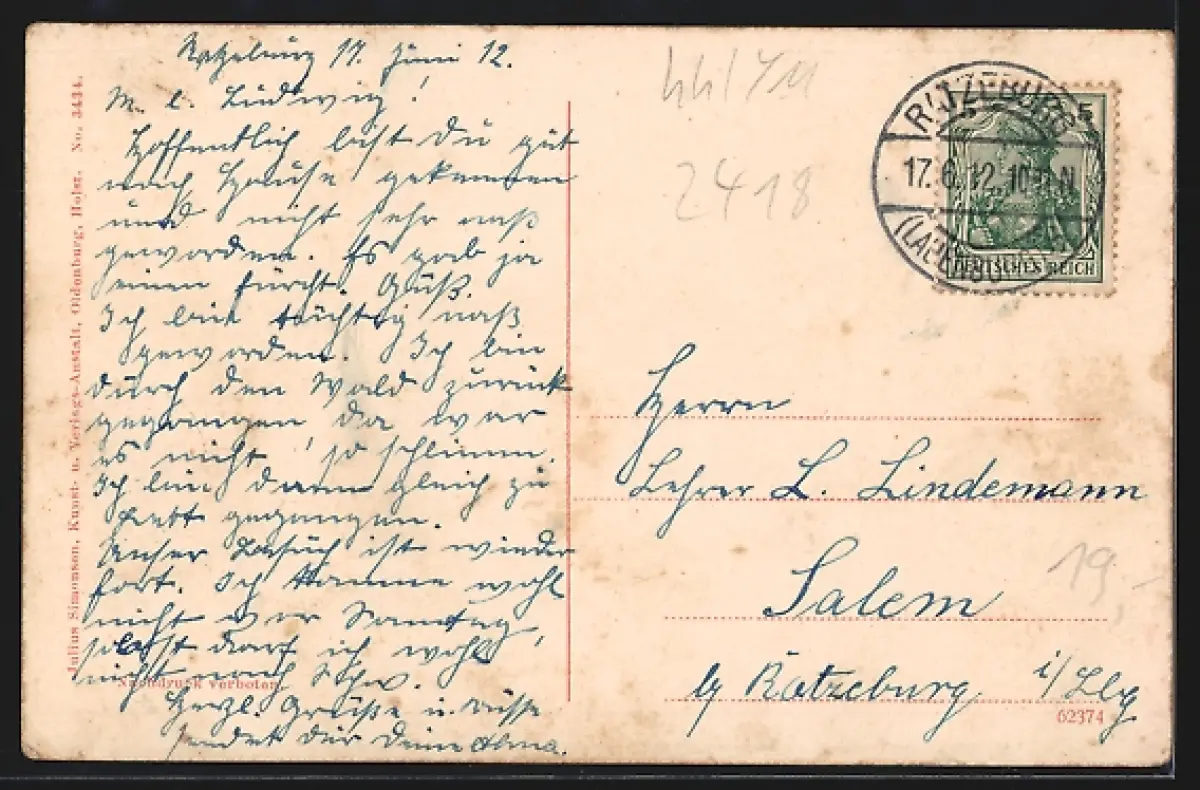 Ratzeburg 17. Juni 12.
M. l. Ludwig!
Hoffentlich bist du gut
nach Hause gekommen
und nicht sehr naß
geworden. Es gab ja
einen furcht. Guß.
Ich bin tüchtig naß
geworden. Ich bin
durch den Wald zurück
gegangen da war
es nicht so schlimm.
Ich bin dann gleich zu
Bett gegangen.
Unser Besuch ist wieder
fort. Ich komme wohl
nicht vor Sonntag,
selbst darf ich wohl
nicht nach Schw.
Herzl. Grüße u. Küsse
sendet dir deine Alma.
Julius Simonsen, Kunst- u. Verlags-Anstalt, Oldenburg, Holst. No. 3434.
Nachdruck verboten
2418
RATZEBURG
17.6.12.10-11N
5
DEUTSCHES REICH
Herrn
Lehrer L. Lindemann
Salem
b/ Ratzeburg i/Lbg
19,-
62374